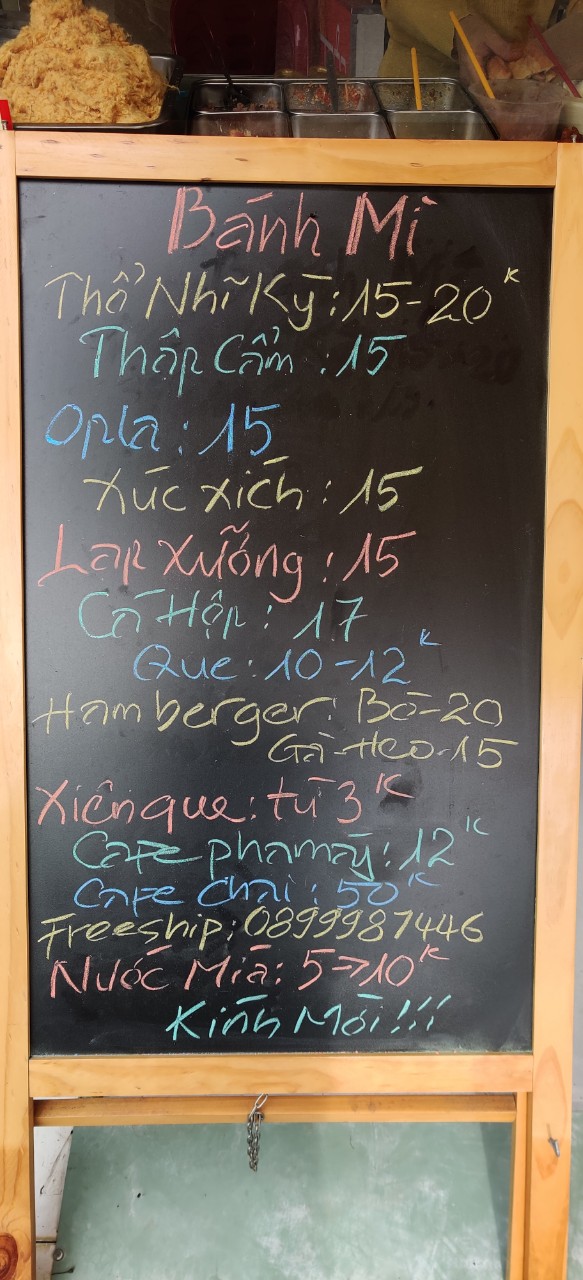 Bánh Mì
Thổ Nhĩ Kỳ: 15-20K
Thập Cẩm: 15
Opla: 15
Xúc xích: 15
Lạp Xưởng: 15
Cá Hộp: 17
Que: 10-12K
Hamberger: Bò-20
Gà-Heo-15
Xiên que: từ 3K
Cafe pha máy: 12K
Cafe chai: 50K
Freeship: 0899987446
Nước Mía: 5→10K
Kính Mời!!!